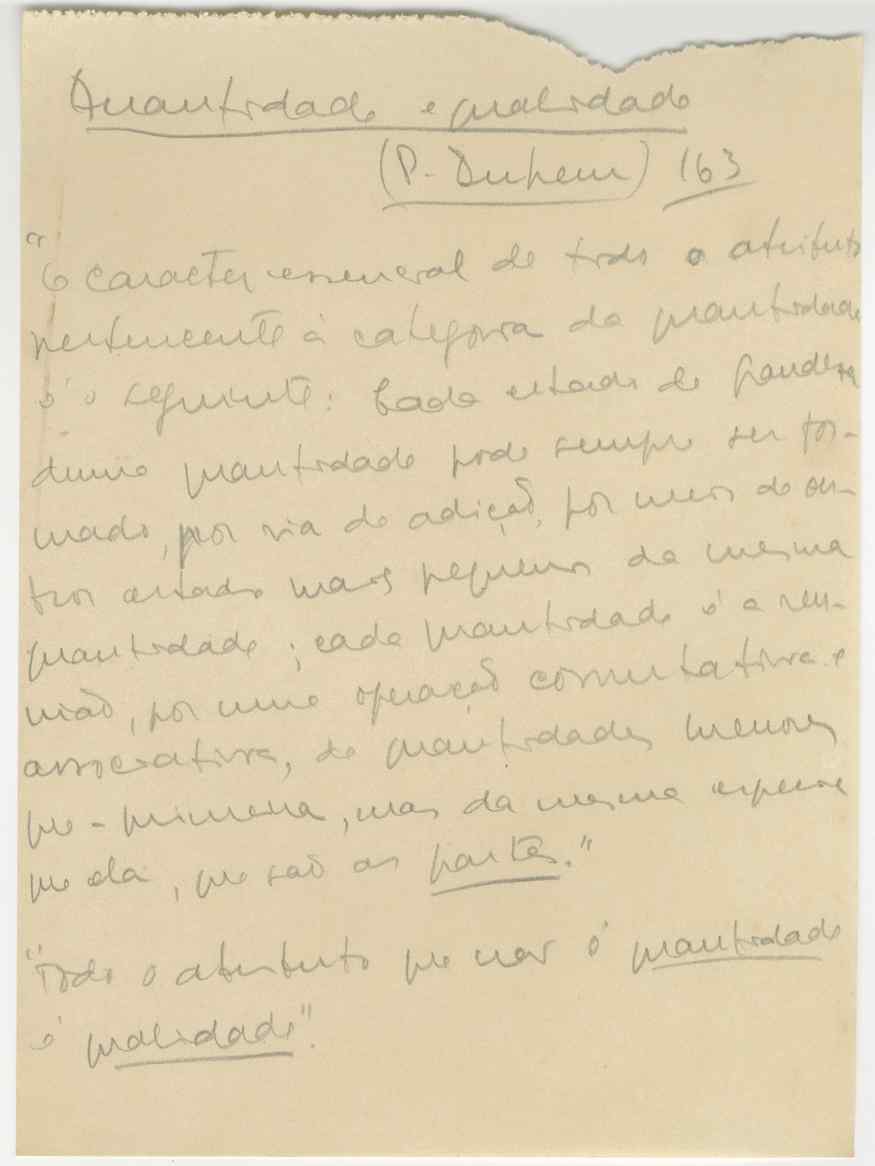 Quantidade e qualidade
(P. Duhem) 163
"O caracter essencial de todo o atributo
pertencente à categoria da quantidade
é o seguinte: Cada estado de grandeza
duma quantidade pode sempre ser for-
mado, por via de adição, por meio de ou-
tros estados mais pequenos da mesma
quantidade; cada quantidade é a reu-
nião, por uma operação comutativa e
associativa, de quantidades menores
que a primeira, mas da mesma especie
que ela, que são as partes."
"Todo o atributo que não é quantidade
é qualidade".